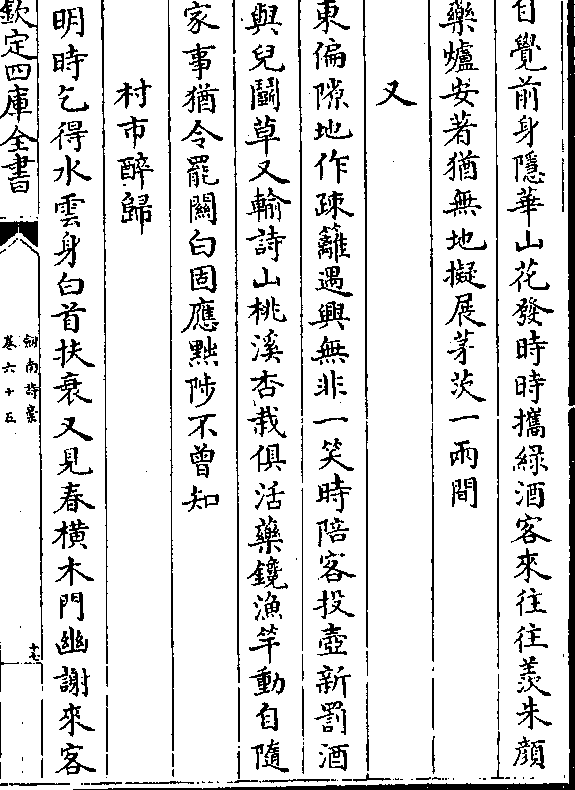 自覺前身隱華山花發時時攜綠酒客來往往羨朱顔
藥爐安著猶無地擬展茅茨一兩間
又
東偏隙地作疎籬遇興無非一笑時陪客投壺新罰酒
與兒鬬草又輸詩山桃溪杏栽俱活藥鑱漁竿動自隨
家事猶令罷關白固應黜陟不曾知
村市醉歸
明時乞得水雲身白首扶衰又見春橫木門幽謝來客
欽定四庫全書
劒南詩稾
卷六十五
十七